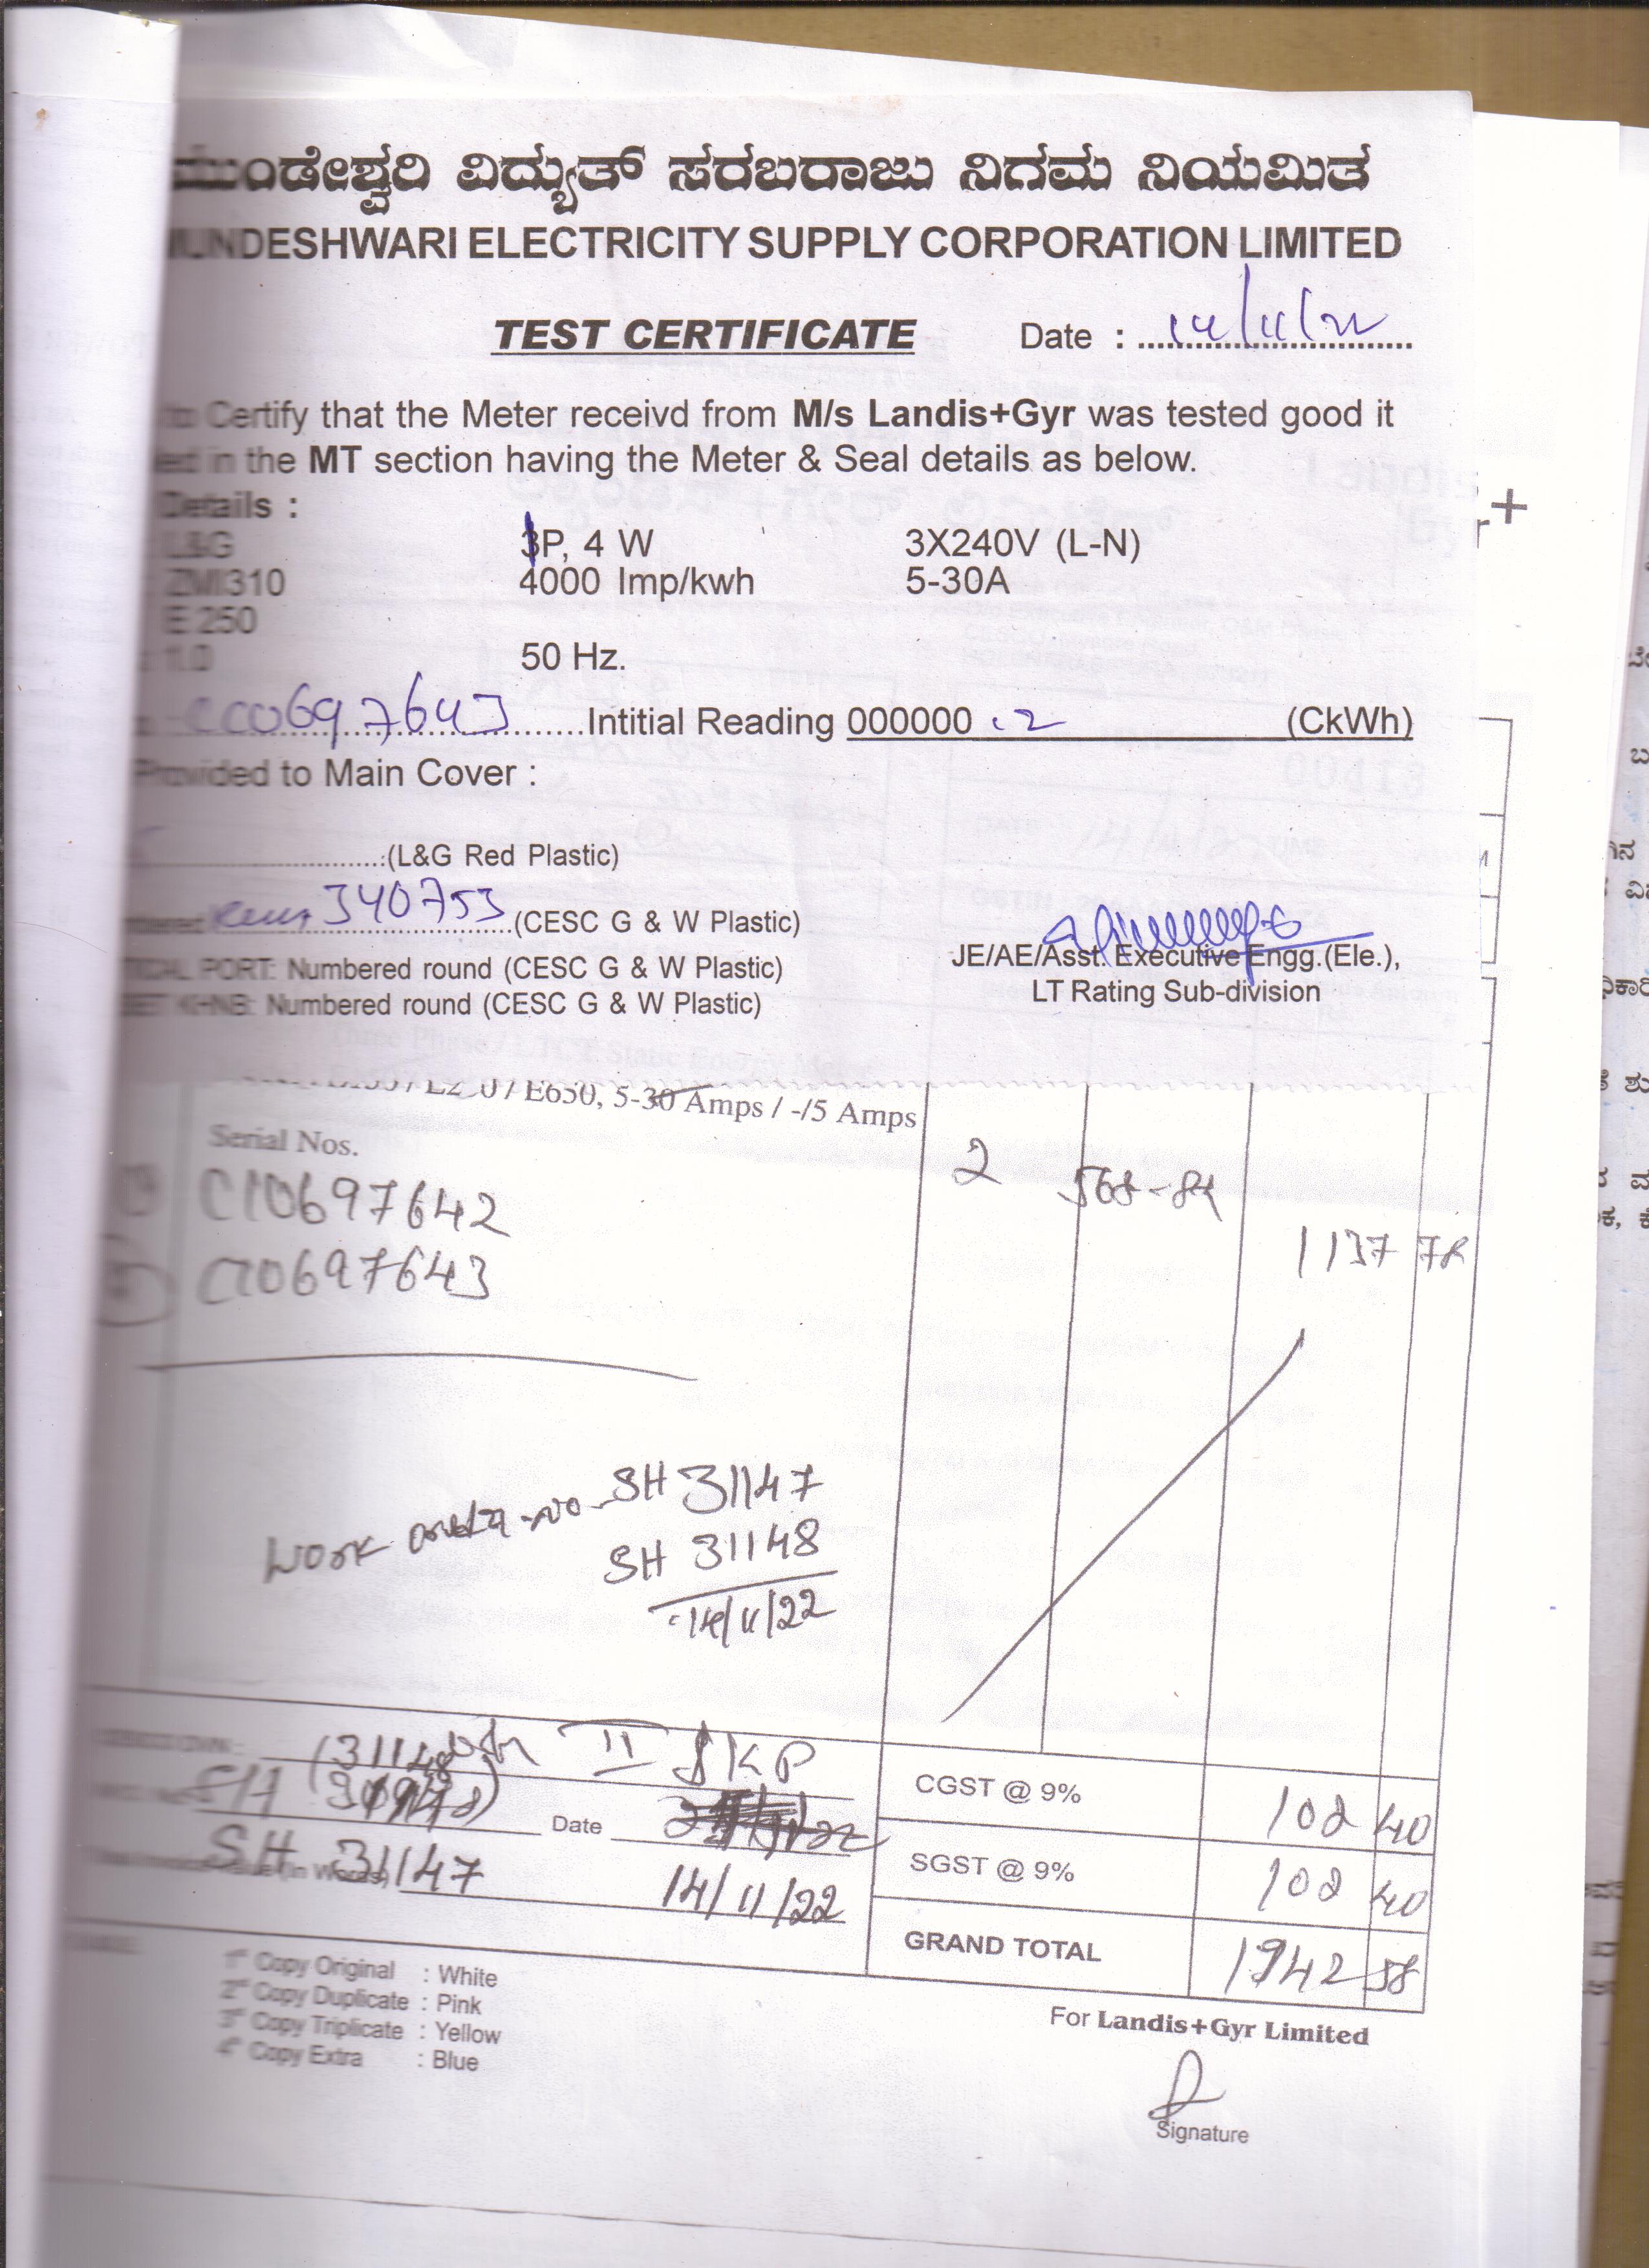 ಮುಂಡೇಶ್ವರಿ ವಿದ್ಯುತ್ ಸರಬರಾಜು ನಿಗಮ ನಿಯಮಿತ
MUNDESHWARI ELECTRICITY SUPPLY CORPORATION LIMITED
TEST CERTIFICATE Date : 14/11/22
to Certify that the Meter receivd from M/s Landis+Gyr was tested good it
in the MT section having the Meter & Seal details as below.
Details :
L&G P, 4 W 3X240V (L-N)
ZMI310 4000 Imp/kwh 5-30A
E 250
1.0 50 Hz.
CC0697643 Intitial Reading 000000 .2 (CkWh)
Provided to Main Cover :
(L&G Red Plastic)
340753 (CESC G & W Plastic)
PORT: Numbered round (CESC G & W Plastic) JE/AE/Asst. Executive Engg.(Ele.),
Numbered round (CESC G & W Plastic) LT Rating Sub-division
/ E650, 5-30 Amps / -/5 Amps
Serial Nos.
C10697642 2 568-84
C10697643 1137 78
Work no SH 31147
SH 31148
14/11/22
31148 II SKP
CGST @ 9% 102 40
Date
SH 31147 14/11/22 SGST @ 9% 102 40
GRAND TOTAL 1342 58
1st Copy Original : White
2nd Copy Duplicate : Pink
3rd Copy Triplicate : Yellow
4th Copy Extra : Blue
For Landis+Gyr Limited
Signature